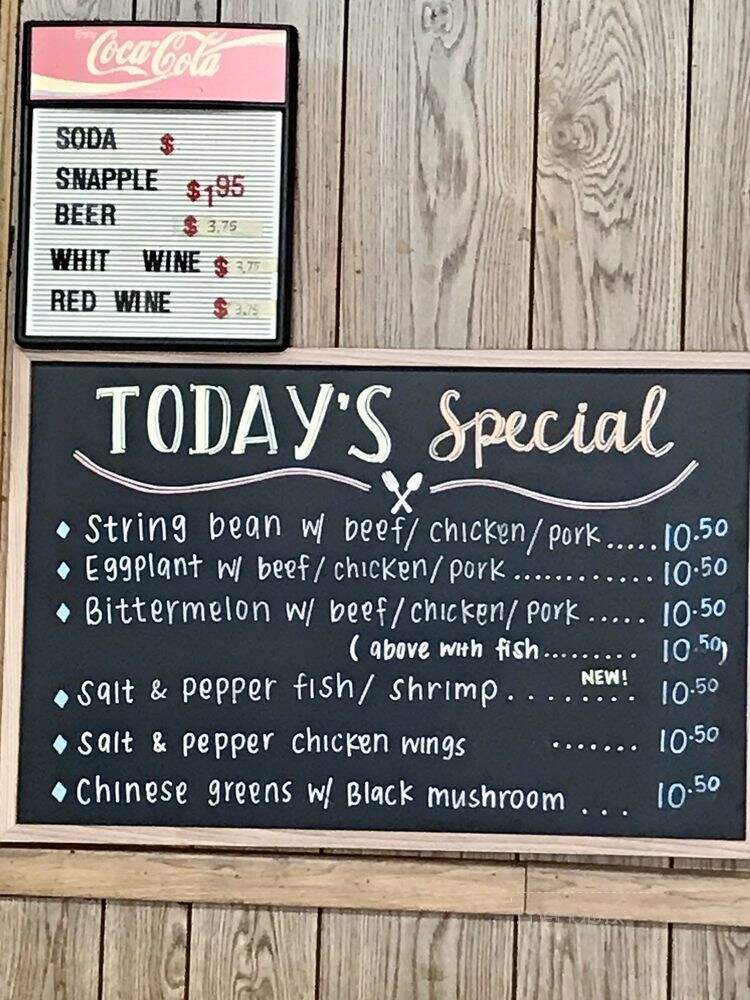 Enjoy
Coca-Cola
SODA $
SNAPPLE $1.95
BEER $ 3.75
WHIT WINE $ 3.75
RED WINE $ 3.75
TODAY'S Special
String bean w/ beef/ chicken/ pork.....10.50
Eggplant w/ beef/ chicken/ pork............10.50
Bittermelon w/ beef/ chicken/ pork.....10.50
( above with fish......... 10.50)
NEW!
Salt & pepper fish/ shrimp........ 10.50
Salt & pepper chicken wings ....... 10.50
Chinese greens w/ Black mushroom ... 10.50